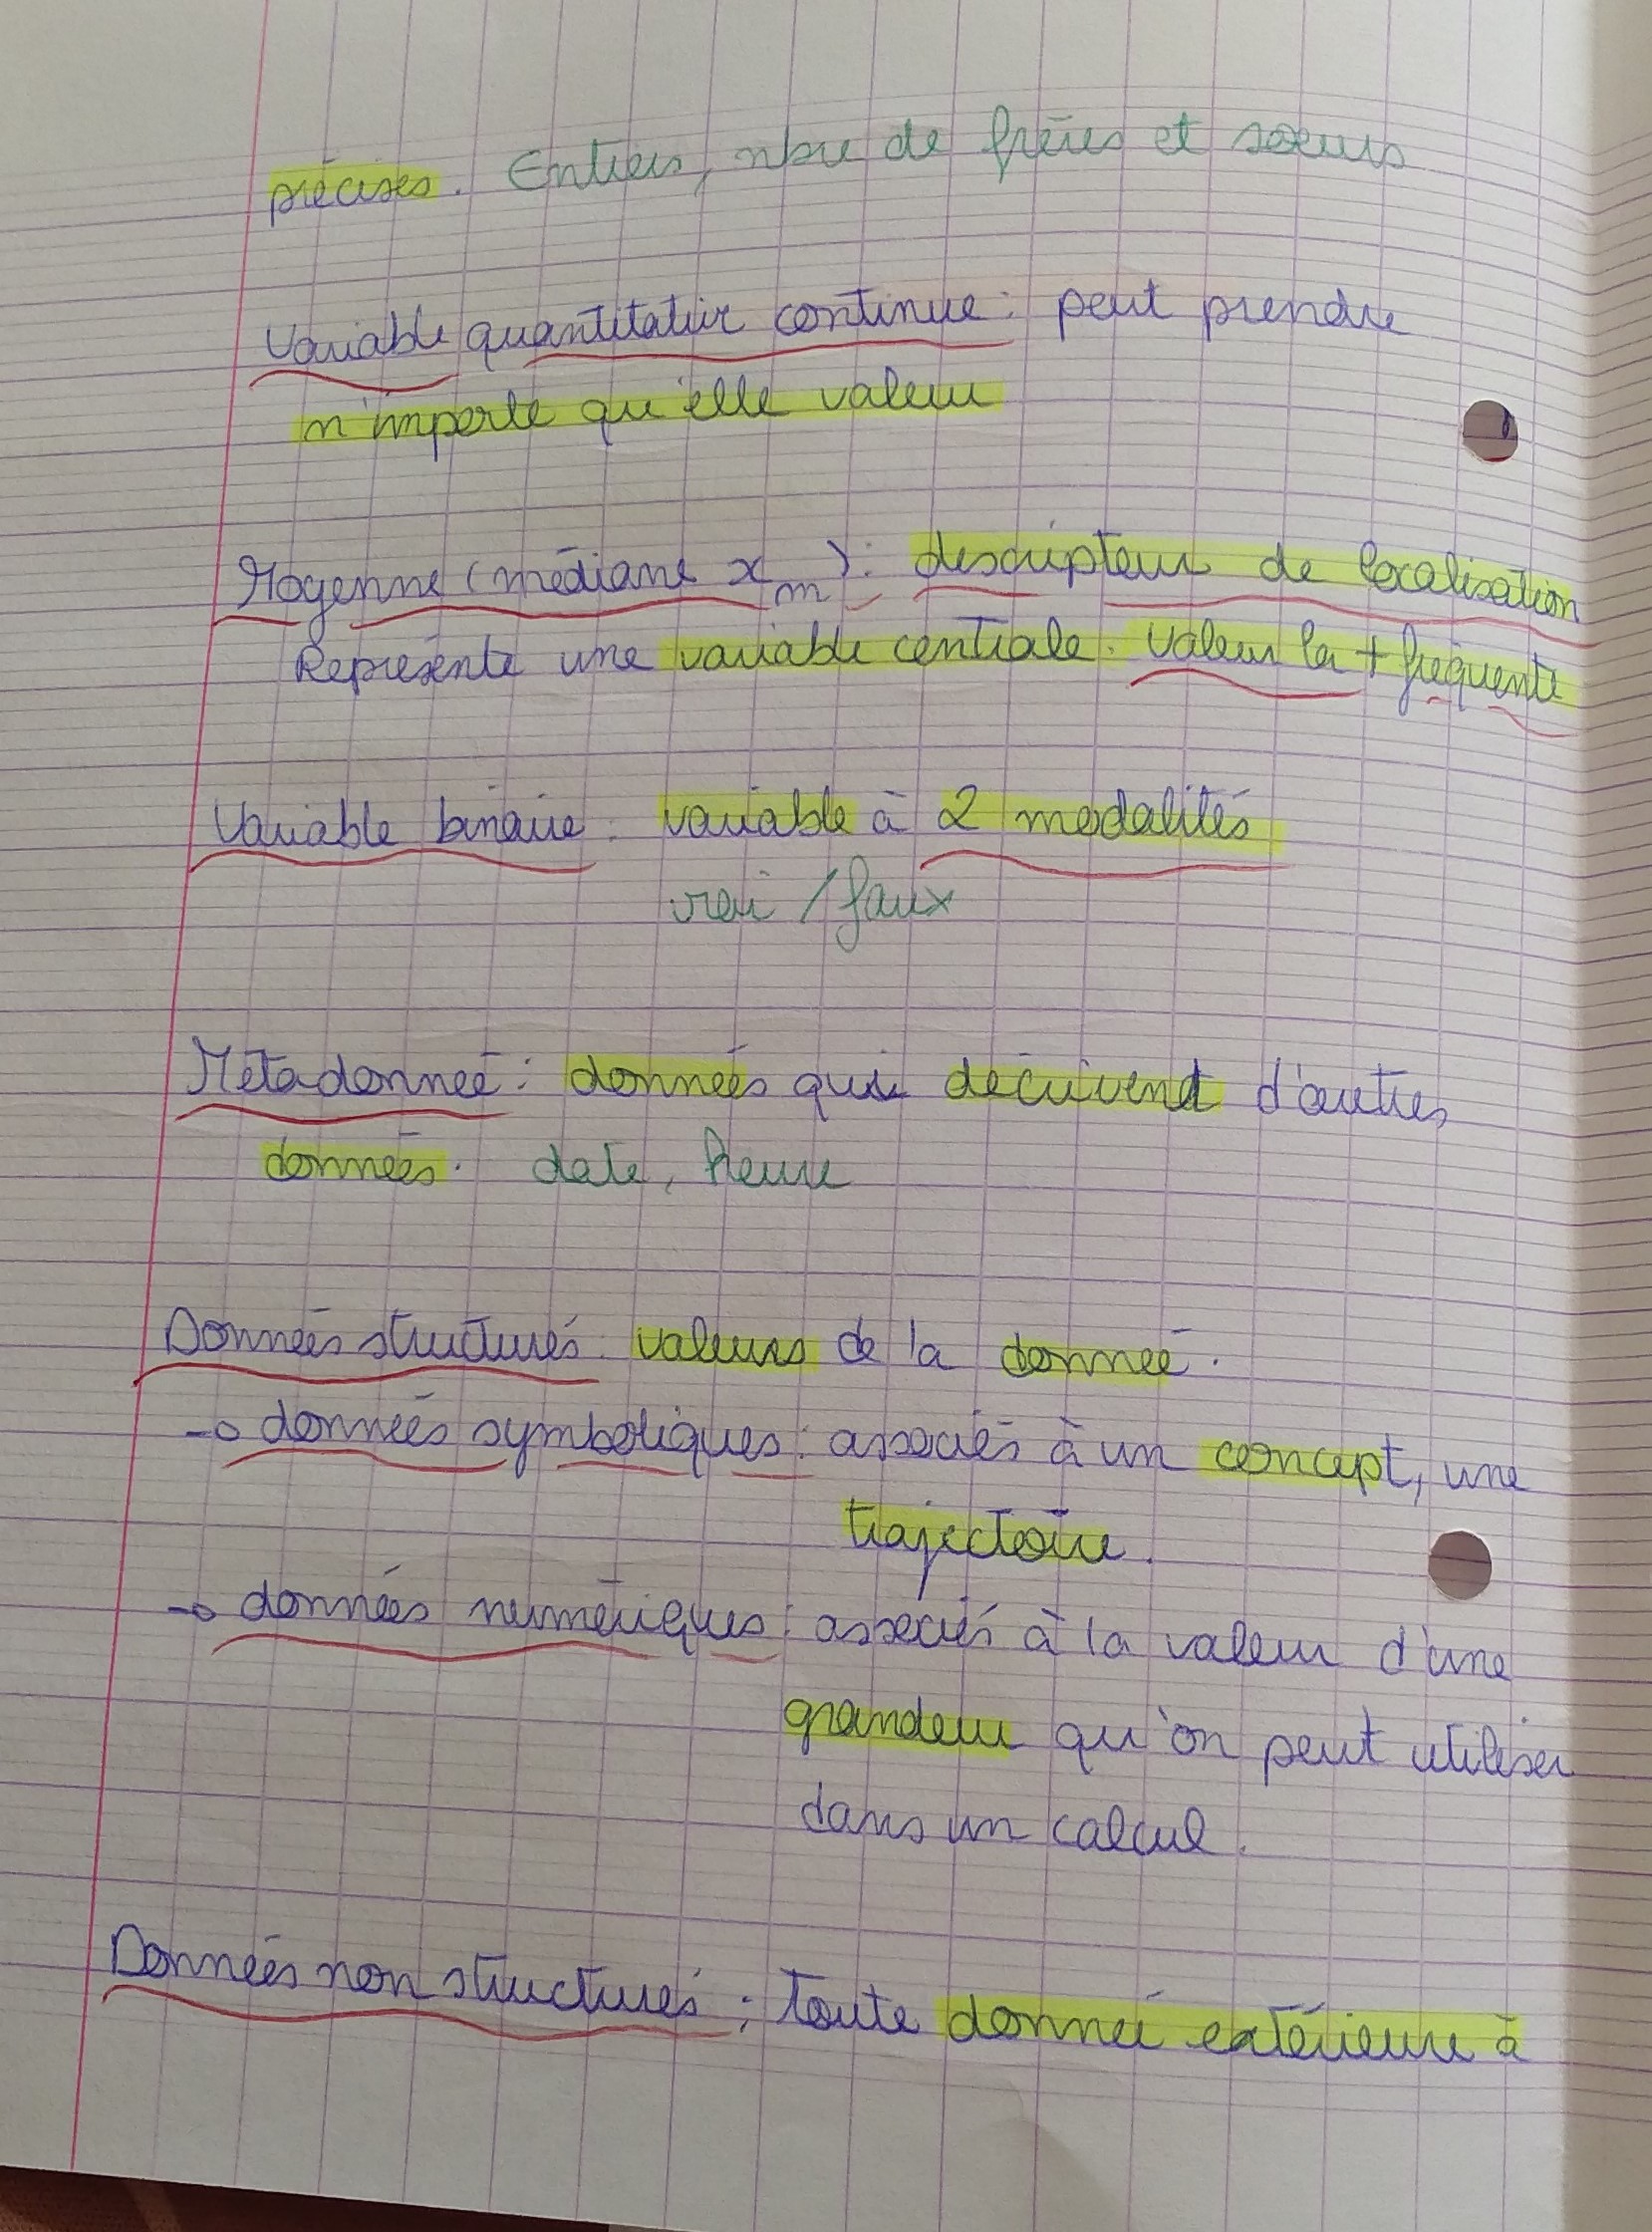 précises. Entiers, nbre de frères et sœurs
Variable quantitative continue : peut prendre
n'importe qu'elle valeur
Moyenne (médiane xm) : descripteur de localisation
Représente une variable centrale. Valeur la + fréquente
Variable binaire : variable à 2 modalités
vrai / faux
Métadonnée : données qui décrivent d'autres
données. date, heure
Données structurés : valeurs de la donnée.
→ données symboliques : associés à un concept, une
trajectoire.
→ données numériques : associés à la valeur d'une
grandeur qu'on peut utiliser
dans un calcul.
Données non structurés : toute donnée extérieure à